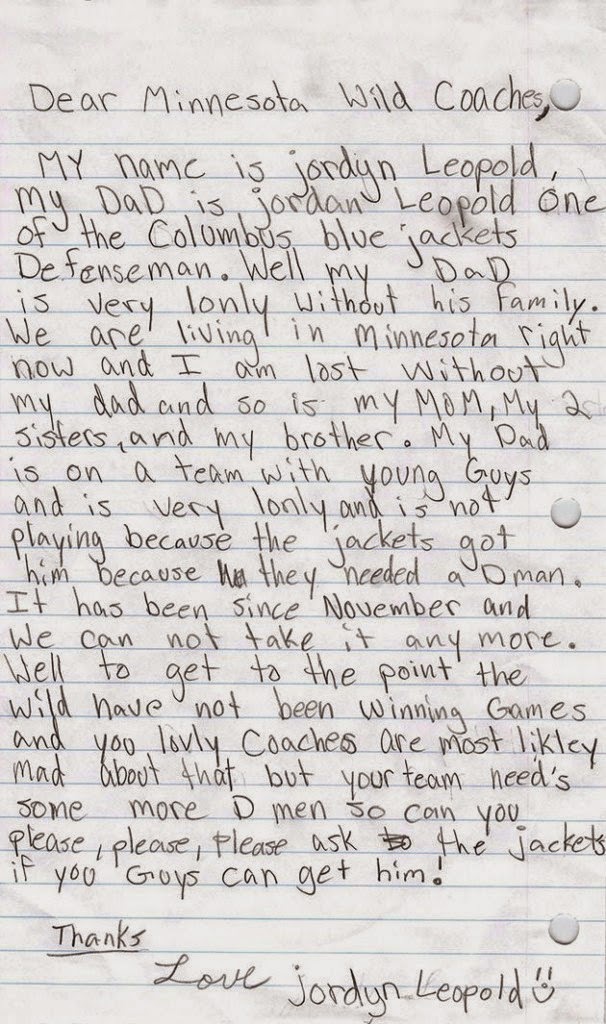 Dear Minnesota Wild Coaches,
MY name is jordyn Leopold,
my DaD is jordan Leopold one
of the Columbus blue jackets
Defenseman. Well my DaD
is very lonly without his family.
We are living in minnesota right
now and I am lost without
my dad and so is my MOM, My 2
sisters, and my brother. My Dad
is on a team with young Guys
and is very lonly and is not
playing because the jackets got
him because they needed a Dman.
It has been since November and
we can not take it any more.
Well to get to the point the
wild have not been winning Games
and you lovly Coaches are most likley
mad about that but your team need's
some more D men so can you
please, please, Please ask to the jackets
if you Guys can get him!
Thanks
Love jordyn Leopold